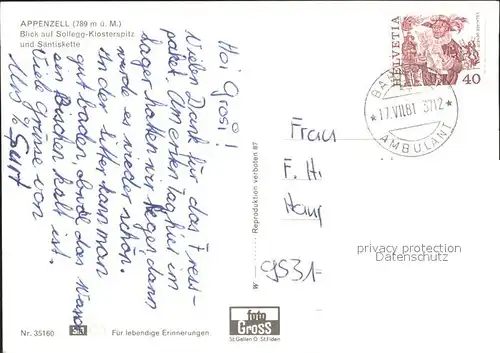 APPENZELL (789 m ü. M.)
Blick auf Sollegg-Klosterspitz
und Säntiskette
Hoi Grosi!
Vielen Dank für das Fress-
paket. Am ersten Tag hier im
Lager hatten wir Regen dann
wurde es wieder schön.
In der Sitter kann man
gut baden, obwohl das Wasser
ein Bischen kalt ist.
Viele Grüsse von
Reproduktion verboten 87
W
HELVETIA
40
BAHNPOST
* 17.VII.81 3712 *
AMBULANT
Frau
F. H
Haup
9531
privacy protection
Datenschutz
Nr. 35160
Für lebendige Erinnerungen.
foto
GROSS
St.Gallen O. St.Fiden